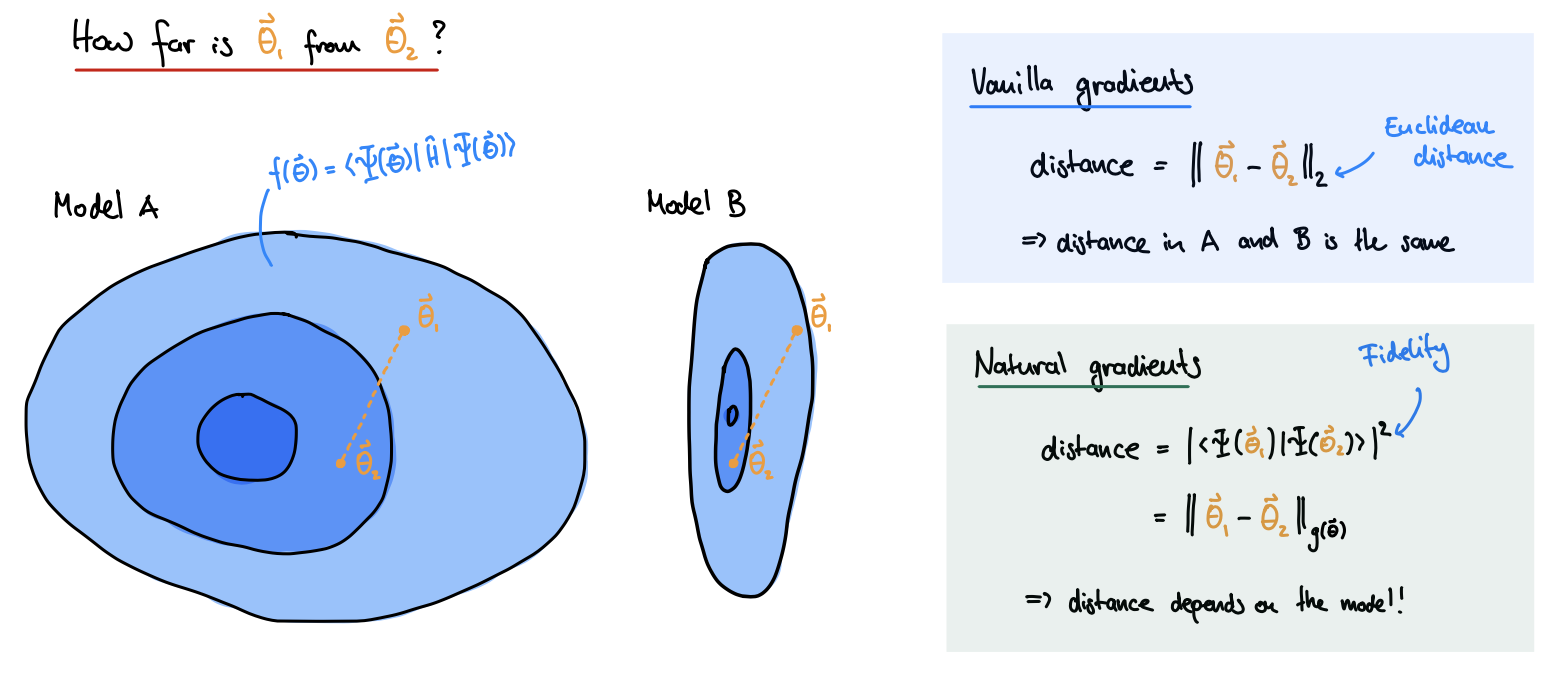 How far is θ⃗₁ from θ⃗₂ ?
f(θ⃗) = ⟨Ψ(θ⃗)|Ĥ|Ψ(θ⃗)⟩
Model A
θ⃗₁
θ⃗₂
Model B
θ⃗₁
θ⃗₂
Vanilla gradients
Euclidean
distance
distance = ‖ θ⃗₁ - θ⃗₂ ‖₂
=> distance in A and B is the same
Natural gradients
Fidelity
distance = |⟨Ψ(θ⃗₁)|Ψ(θ⃗₂)⟩|²
= ‖ θ⃗₁ - θ⃗₂ ‖g(θ⃗)
=> distance depends on the model!